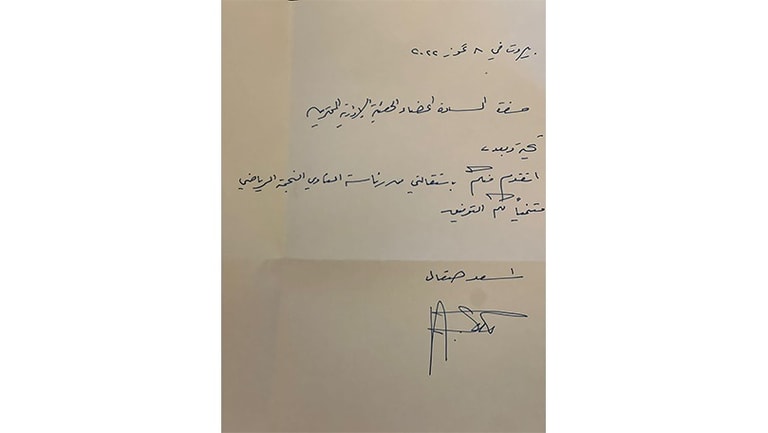 بيروت في ٨ تموز ٢٠٢٢
حضرة السادة اعضاء الهيئة الادارية المحترمين
تحية وبعد،
اتقدم منكم باستقالتي من رئاسة النادي النجمة الرياضي
متمنياً لكم التوفيق
اسعد صقال
A. Sak